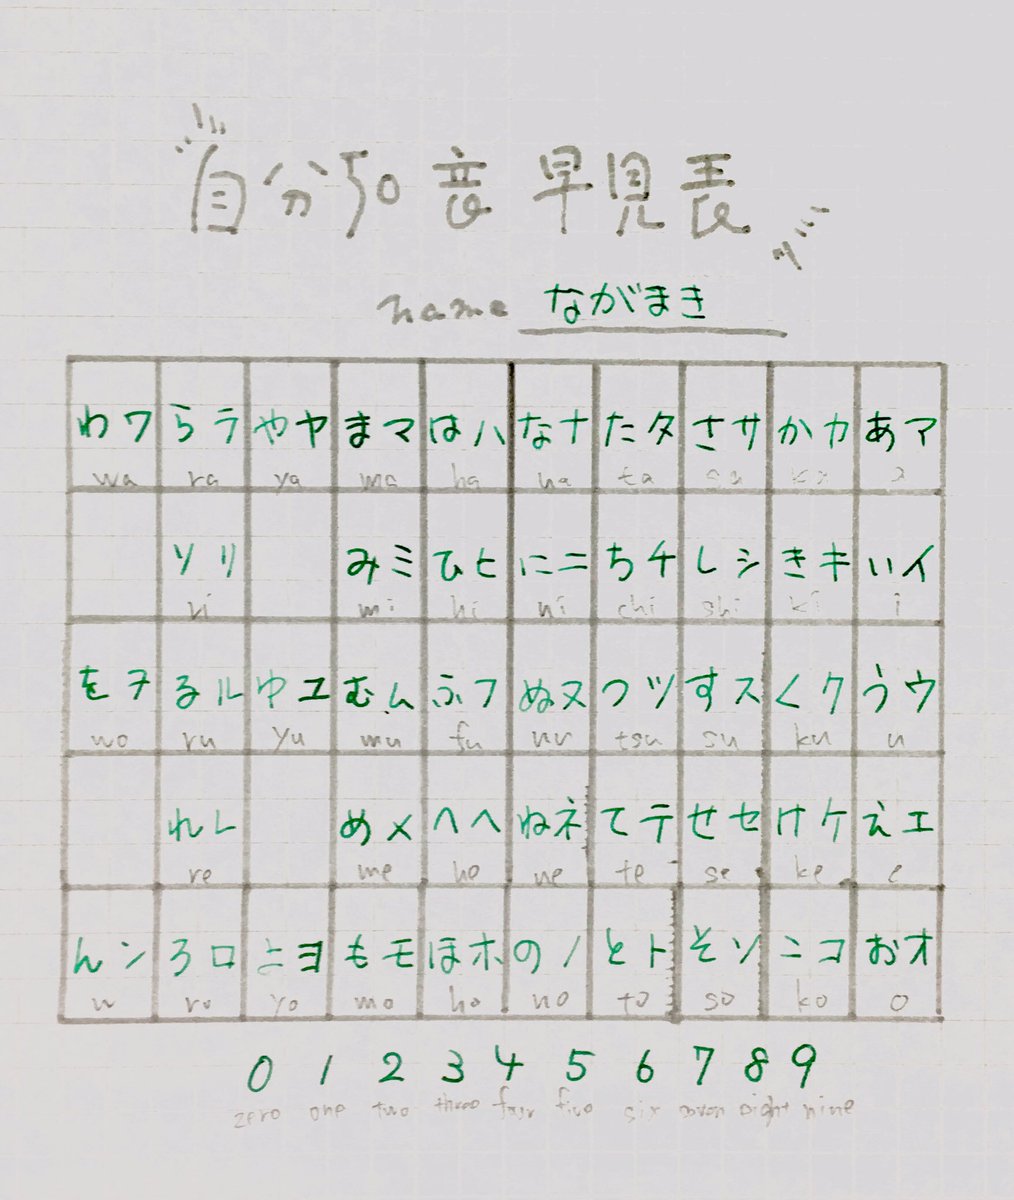 自分50音 早見表
name ながまき
わワ らラ やヤ まマ はハ なナ たタ さサ かカ あア
wa ra ya ma ha na ta sa ka a
りリ みミ ひヒ にニ ちチ しシ きキ いイ
ri mi hi ni chi shi ki i
をヲ るル ゆユ むム ふフ ぬヌ つツ すス くク うウ
wo ru yu mu fu nu tsu su ku u
れレ めメ へヘ ねネ てテ せセ けケ えエ
re me he ne te se ke e
んン ろロ よヨ もモ ほホ のノ とト そソ こコ おオ
n ro yo mo ho no to so ko o
0 1 2 3 4 5 6 7 8 9
zero one two three four five six seven eight nine